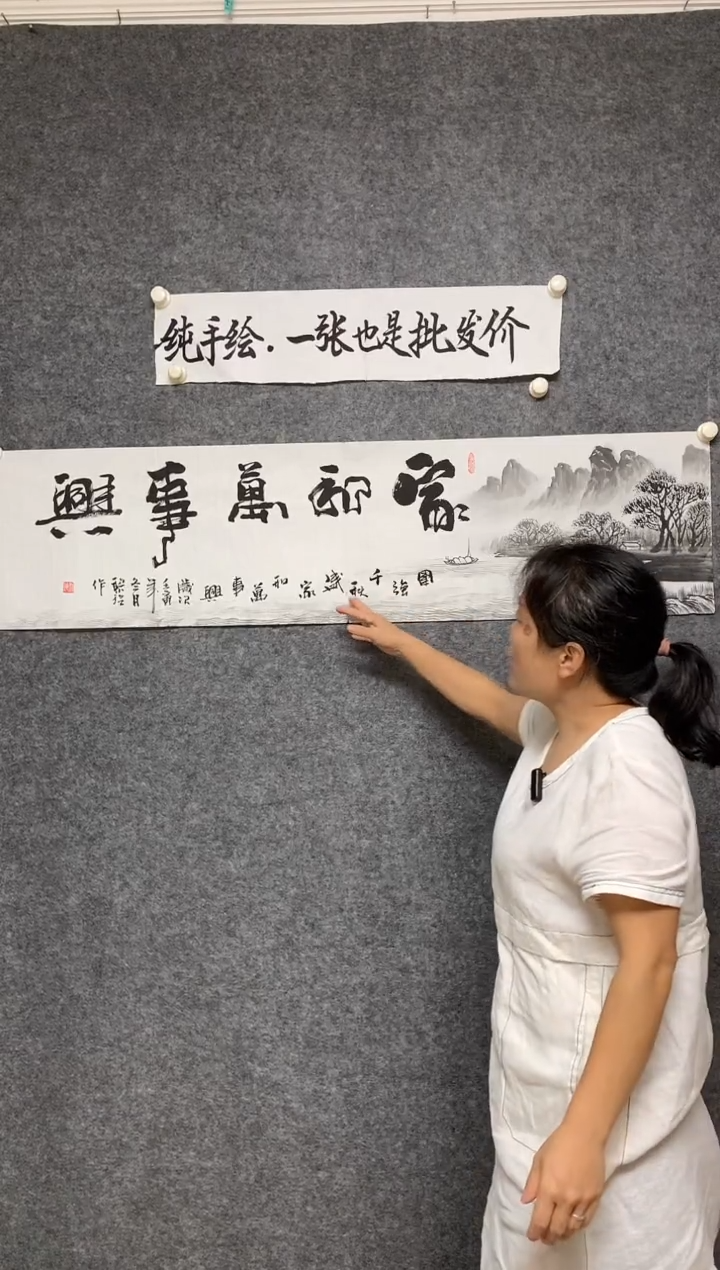 纯手绘.一张也是批发价
家和萬事興
國強千秋盛家和萬事興歲次
作